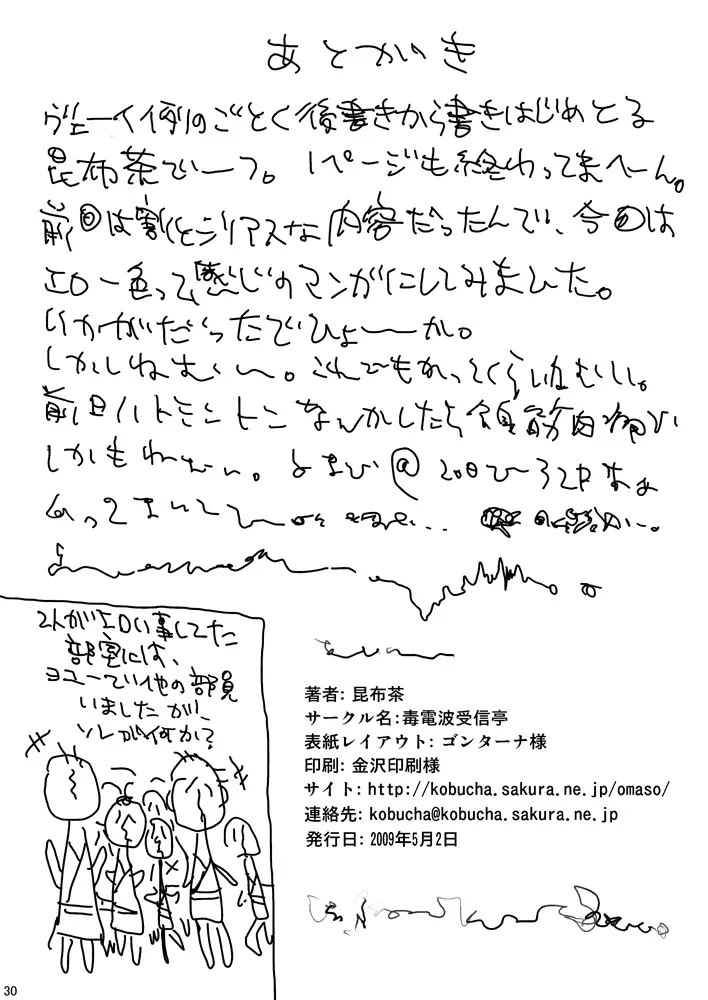 あとがき
ヴェーイ例のごとく後書きから書きはじめとる
昆布茶でーす。1ページも終わってまへーん。
前回は割とシリアスな内容だったんで、今回は
エロ一色って感じのマンガにしてみまひた。
いかがだったでひょーーか。
しかしねむい〜。これでもかってくらいねむいし。
前日バドミントンなんかしたら全身筋肉痛だし
しかもねむい。
2人がエロい事してた
部室には、
ヨユーでい他の部員
いましたが、
ソレが何か?
著者: 昆布茶
サークル名:毒電波受信亭
表紙レイアウト: ゴンターナ様
印刷: 金沢印刷様
サイト: http://kobucha.sakura.ne.jp/omaso/
連絡先: kobucha@kobucha.sakura.ne.jp
発行日: 2009年5月2日
30